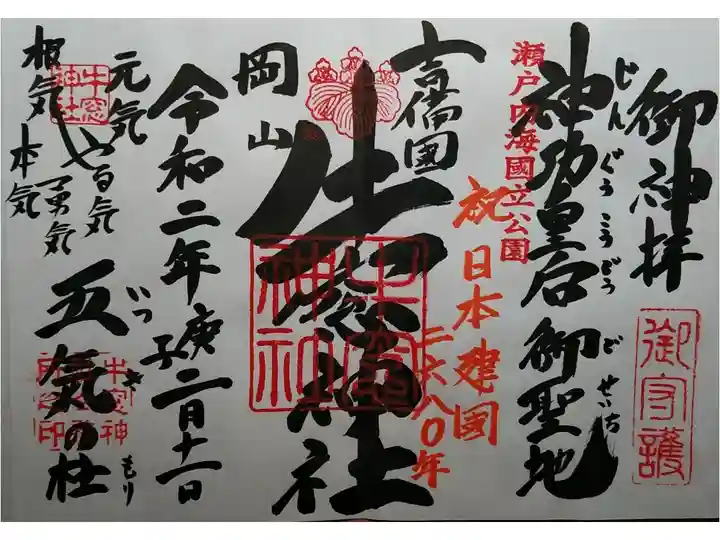 御神拝
御守護
神功皇后御聖地
じんぐうこうごう ごせいち
瀬戸内海國立公園
祝日本建国
二六八〇年
吉備國
牛窓神社
牛窓
神社
岡山
令和二年庚子二月十一日
元気
やる気
勇気
本気
根気
牛窓
神社
五氣の杜
いつき もり